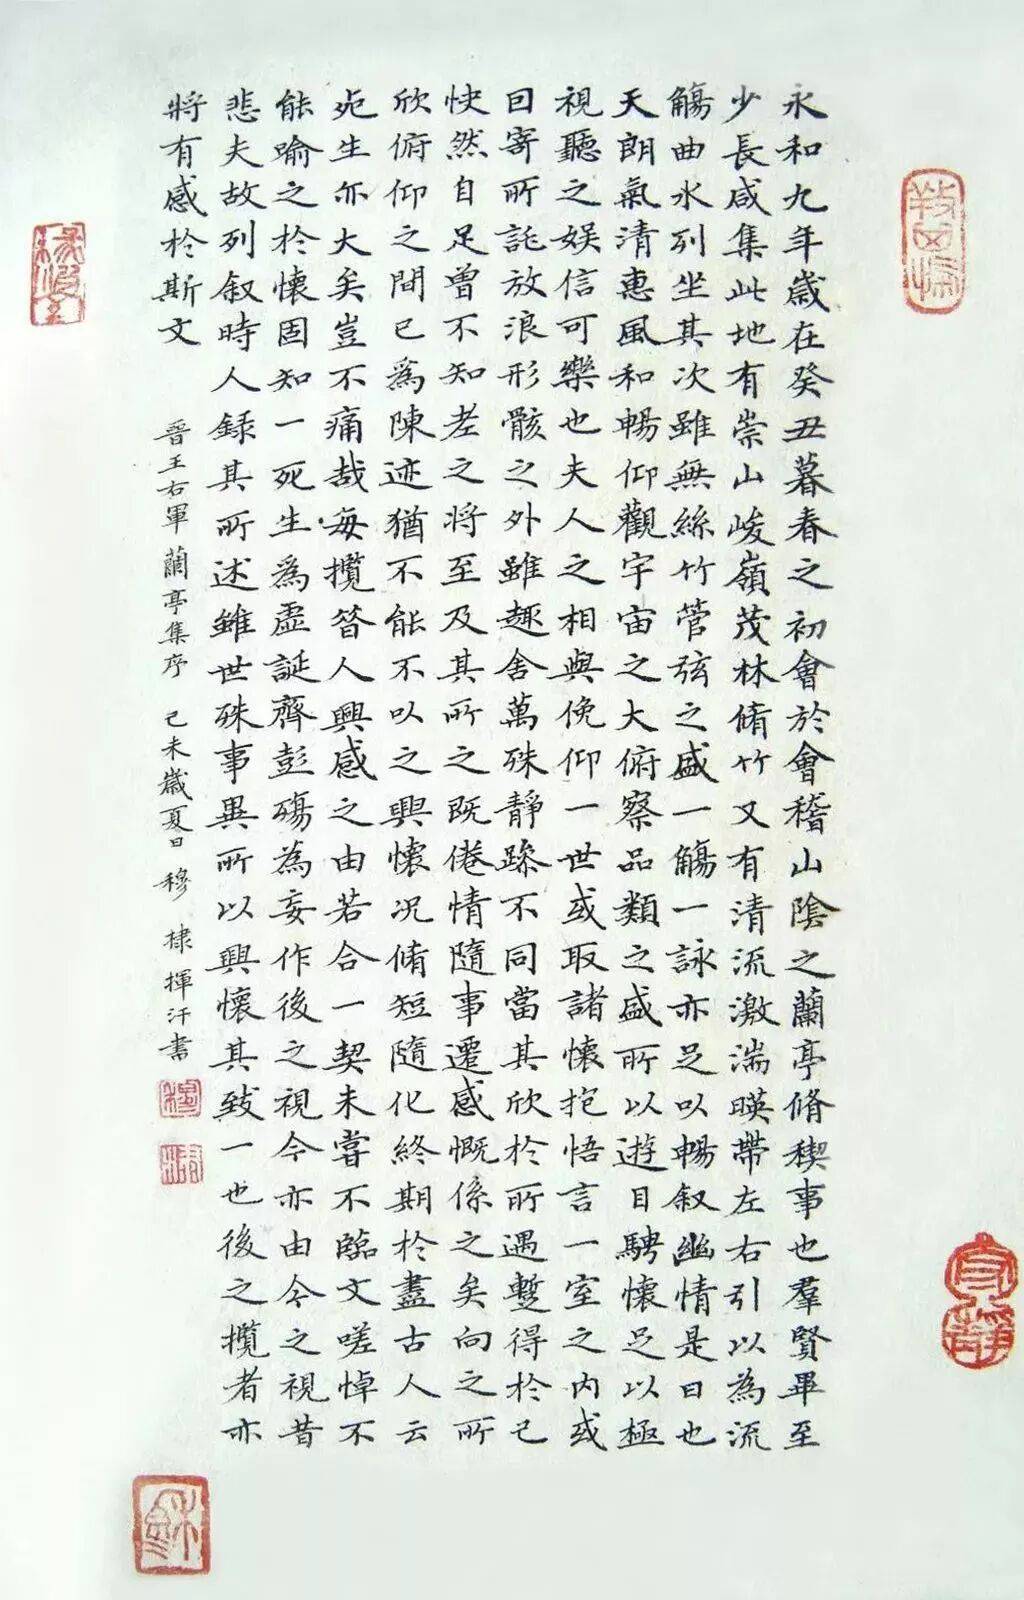 永和九年歲在癸丑暮春之初會於會稽山陰之蘭亭脩稧事也羣賢畢至
少長咸集此地有崇山峻嶺茂林脩竹又有清流激湍暎帶左右引以為流
觴曲水列坐其次雖無絲竹管弦之盛一觴一詠亦足以暢叙幽情是日也
天朗氣清惠風和暢仰觀宇宙之大俯察品類之盛所以遊目騁懷足以極
視聽之娛信可樂也夫人之相與俛仰一世或取諸懷抱悟言一室之内或
因寄所託放浪形骸之外雖趣舍萬殊靜躁不同當其欣於所遇暫得於己
快然自足曾不知老之將至及其所之既倦情隨事遷感慨係之矣向之所
欣俯仰之間已為陳迹猶不能不以之興懷况脩短隨化終期於盡古人云
死生亦大矣豈不痛哉每攬昔人興感之由若合一契未嘗不臨文嗟悼不
能喻之於懷固知一死生為虛誕齊彭殤為妄作後之視今亦由今之視昔
悲夫故列叙時人錄其所述雖世殊事異所以興懷其致一也後之攬者亦
將有感於斯文 晉王右軍蘭亭集序 己未歲夏日 穆棣揮汗書